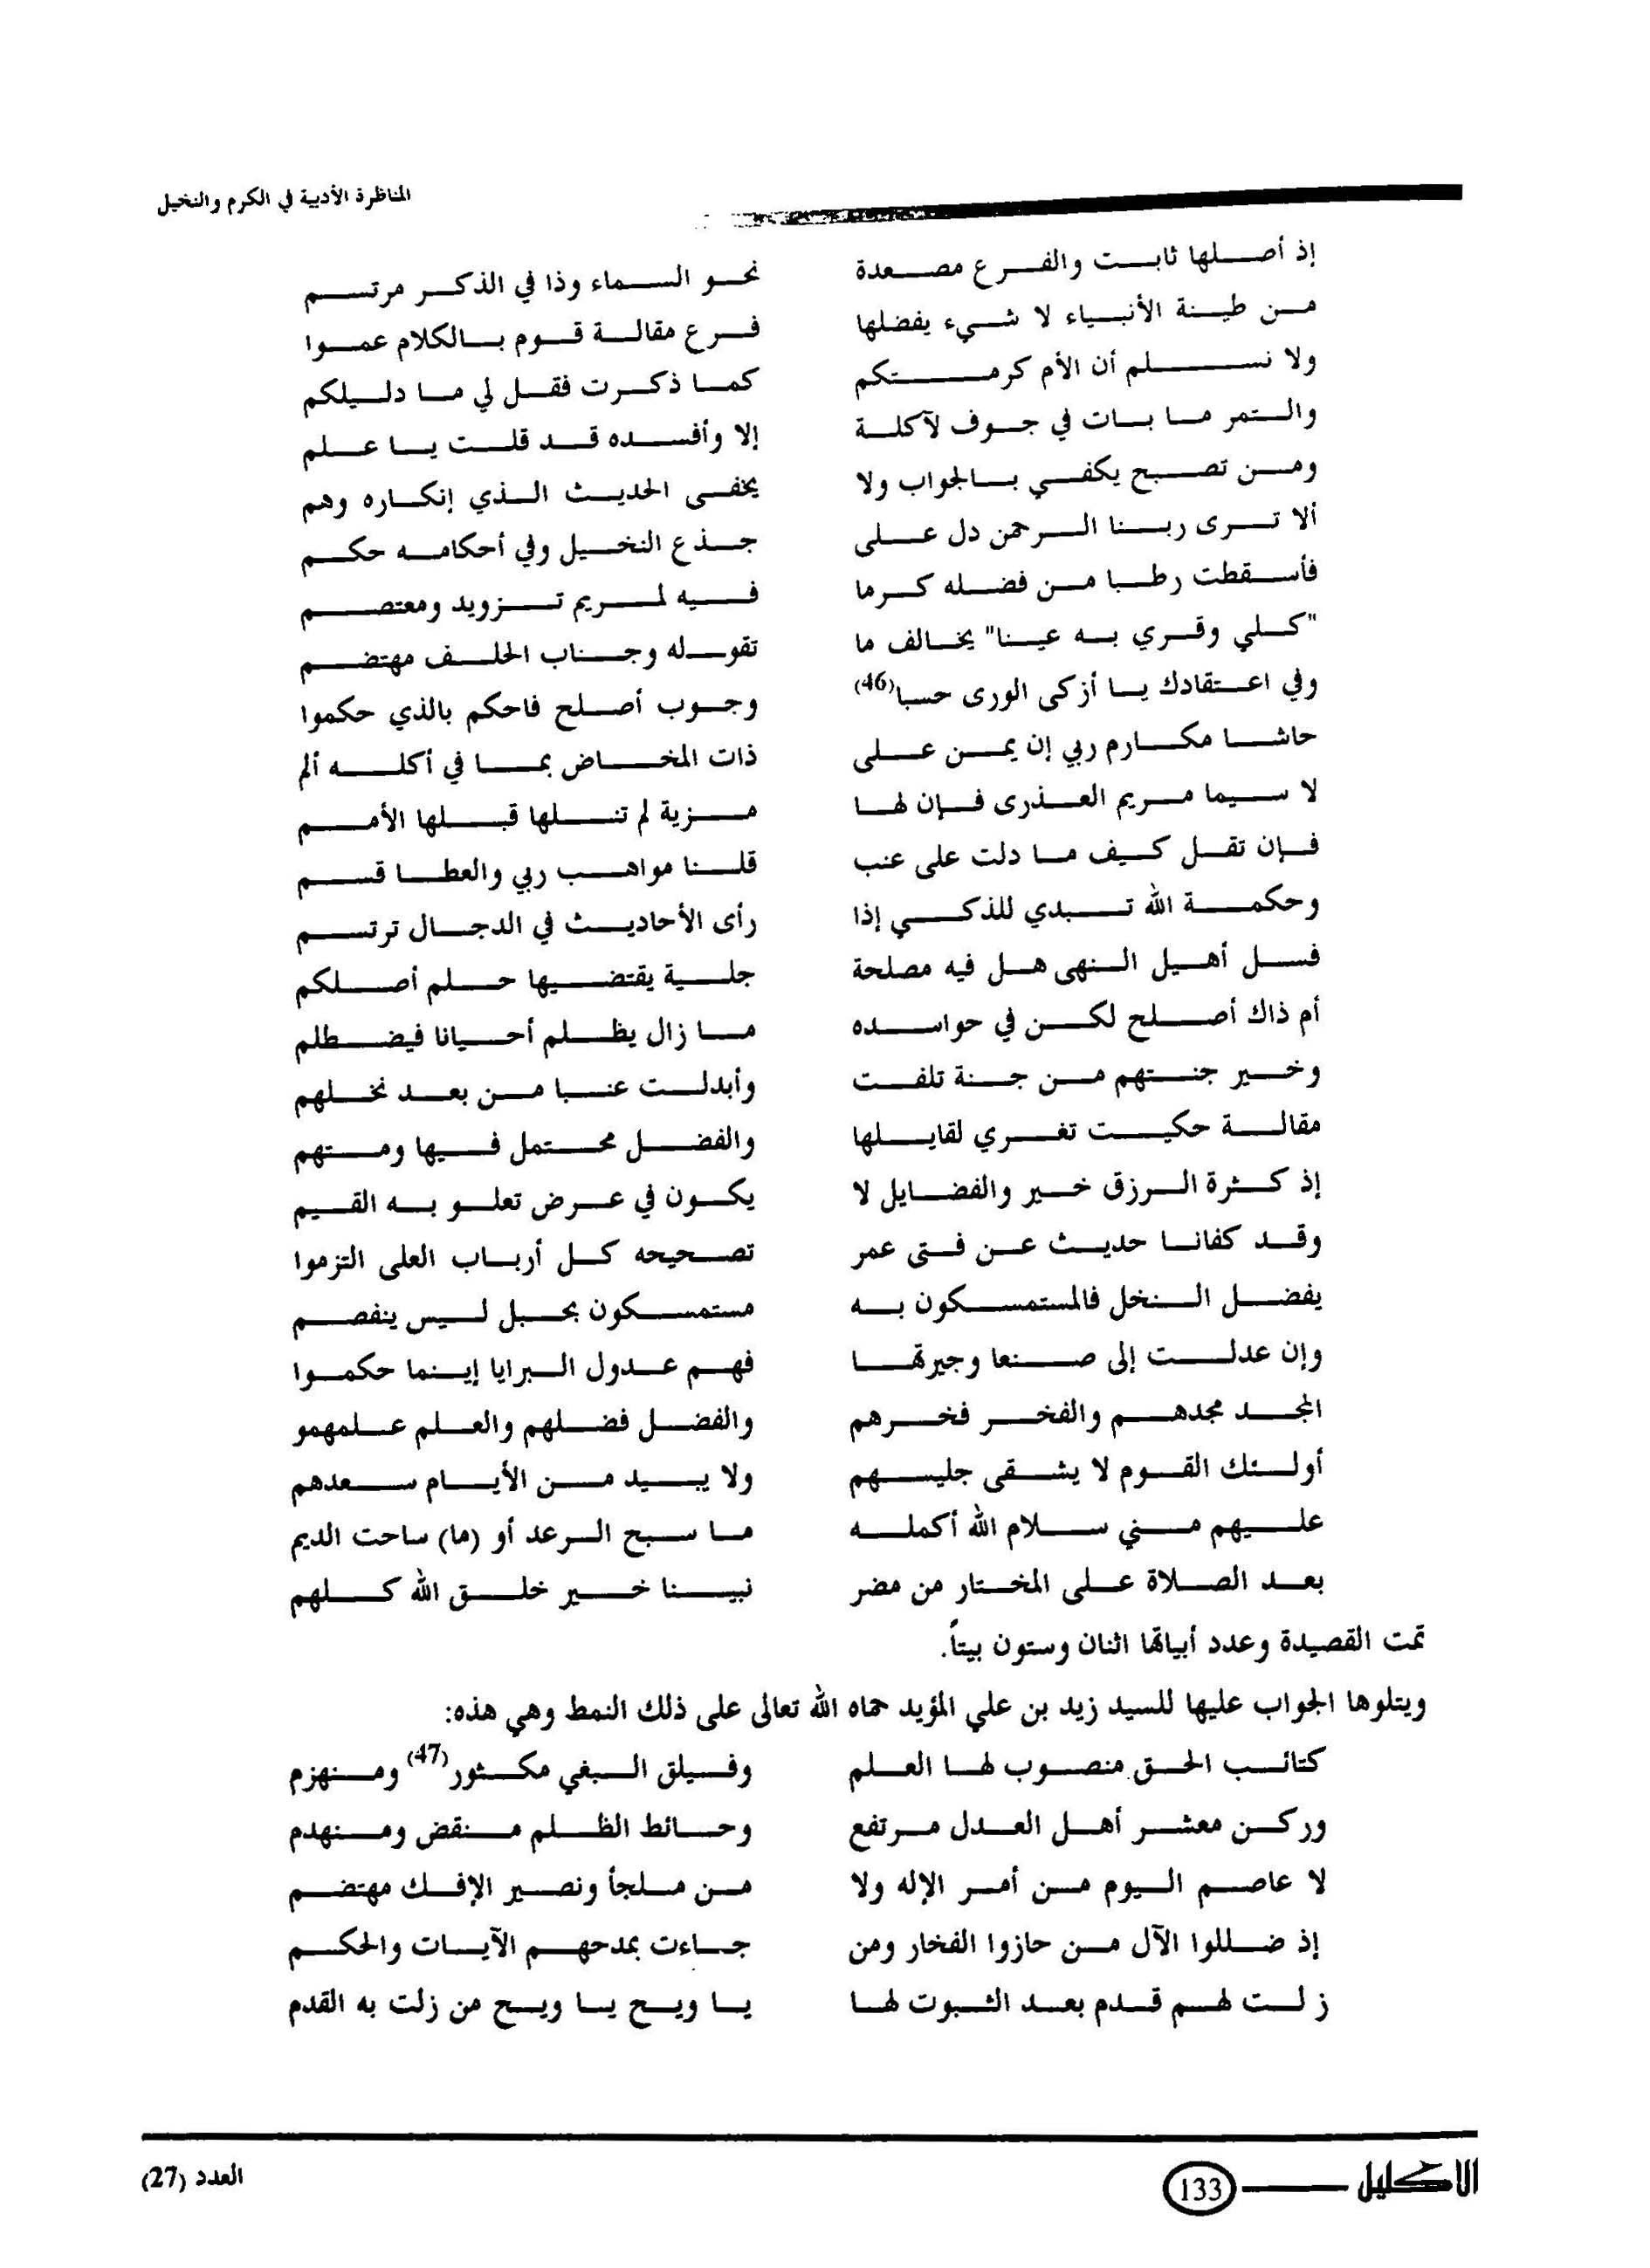 المناظرة الأدبية في الكرم والنخيل
إذ أصلها ثابت والفرع مصعدة نحو السماء وذا في الذكر مرتسم
من طينة الأنبياء لا شيء يفضلها فرع مقالة قوم بالكلام عموا
ولا نسلم أن الأم كرمتكم كما ذكرت فقل لي ما دليلكم
والتمر ما بات في جوف لآكلة إلا وأفسده قد قلت يا علم
ومن تصبح يكفي بالجواب ولا يخفى الحديث الذي إنكاره وهم
ألا ترى ربنا الرحمن دل على جذع النخيل وفي أحكامه حكم
فأسقطت رطبا من فضله كرما فيه لمريم تزويد ومعتصم
"كلي وقري به عينا" يخالف ما تقوله وجناب الخلف مهتضم
وفي اعتقادك يا أزكى الورى حسبا(46) وجوب أصلح فاحكم بالذي حكموا
حاشا مكارم ربي إن يمن على ذات المخاض بما في أكله ألم
لا سيما مريم العذرى فإن لها مزية لم تنلها قبلها الأمم
فإن تقل كيف ما دلت على عنب قلنا مواهب ربي والعطا قسم
وحكمة الله تبدي للذكي إذا رأى الأحاديث في الدجال ترتسم
فسل أهيل النهى هل فيه مصلحة جلية يقتضيها حلم أصلكم
أم ذاك أصلح لكن في حواسده ما زال يظلم أحيانا فيضطلم
وخير جنتهم من جنة تلفت وأبدلت عنبا من بعد نخلهم
مقالة حكيت تغري لقايلها والفضل محتمل فيها ومتهم
إذ كثرة الرزق خير والفضايل لا يكون في عرض تعلو به القيم
وقد كفانا حديث عن فتى عمر تصحيحه كل أرباب العلى التزموا
يفضل النخل فالمستمسكون به مستمسكون بحبل ليس ينفصم
وإن عدلت إلى صنعا وجيرتها فهم عدول البرايا إينما حكموا
المجد مجدهم والفخر فخرهم والفضل فضلهم والعلم علمهمو
أولئك القوم لا يشقى جليسهم ولا يبيد من الأيام سعدهم
عليهم مني سلام الله أكمله ما سبح الرعد أو (ما) ساحت الديم
بعد الصلاة على المختار من مضر نبينا خير خلق الله كلهم
تمت القصيدة وعدد أبياتها اثنان وستون بيتاً.
ويتلوها الجواب عليها للسيد زيد بن علي المؤيد حماه الله تعالى على ذلك النمط وهي هذه:
كتائب الحق منصوب لها العلم وفيلق البغي مكثور(47) ومنهزم
وركن معشر أهل العدل مرتفع وحائط الظلم منقض ومنهدم
لا عاصم اليوم من أمر الإله ولا من ملجأ ونصير الإفك مهتضم
إذ ضللوا الآل من حازوا الفخار ومن جاءت بمدحهم الآيات والحكم
زلت لهم قدم بعد الثبوت لها يا ويح يا ويح من زلت به القدم
الاكليل 133 العدد (27)